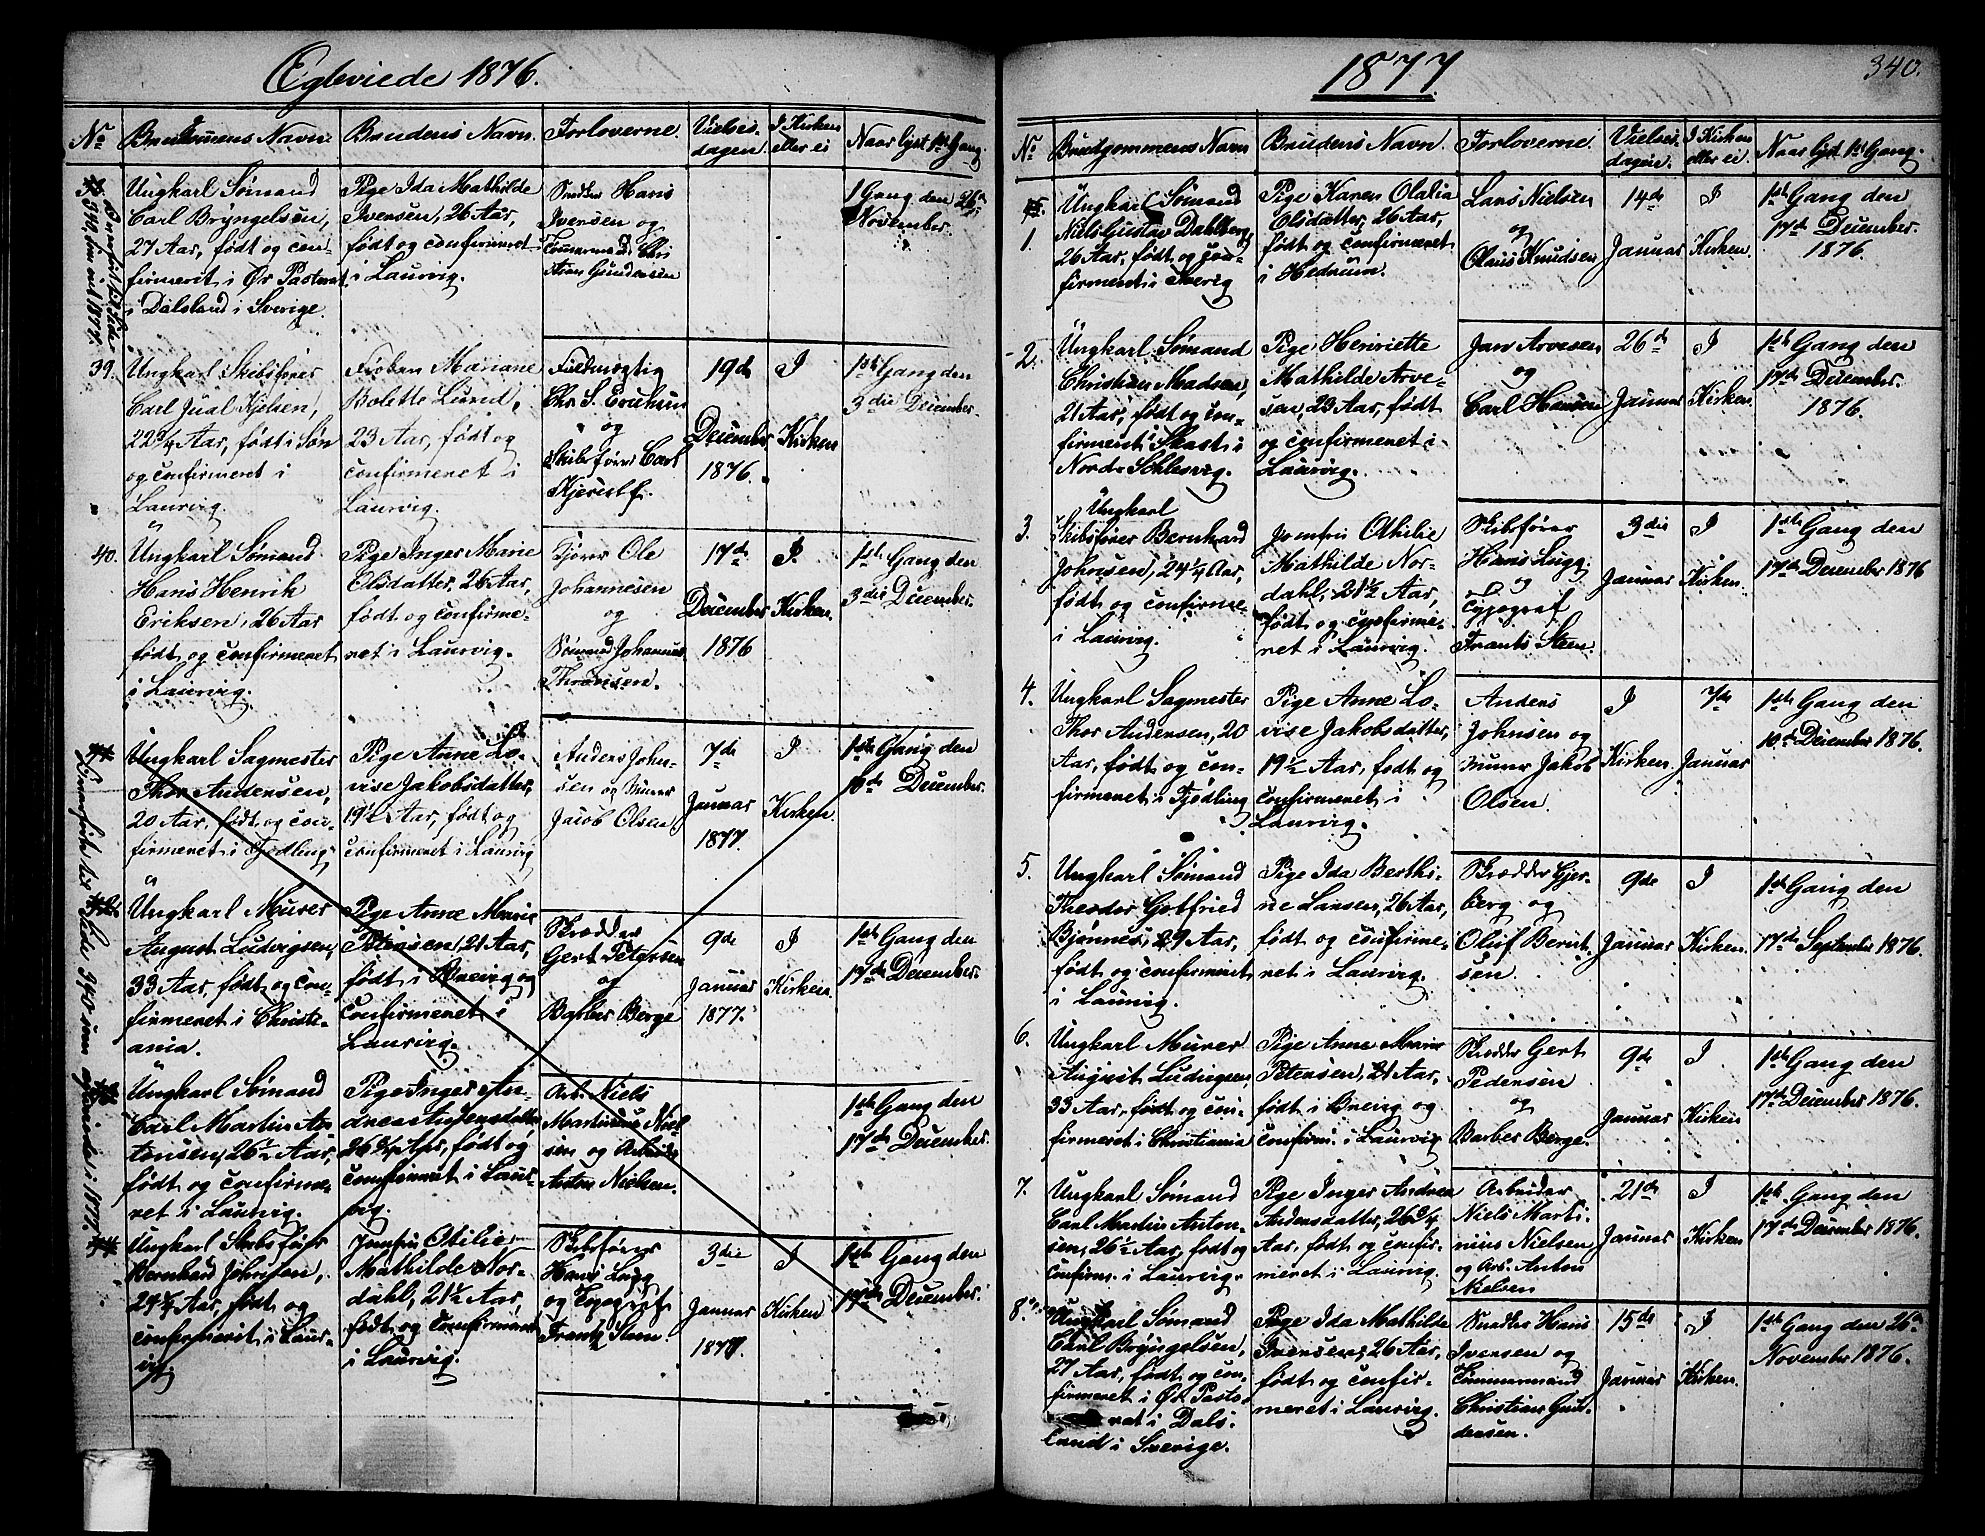 Egteviede 1876.
No
Brudgommens Navn.
Brudens Navn.
Forloverne.
Vielses-
dagen.
I Kirken
eller ei
Naar lyst 1ste Gang.
Ungkarl Sømand
Carl Bryngelsen,
27 Aar, født og con-
firmeret i Ør Pastorat
i Dalsland i Sverige.
Pige Ida Mathilde
Iversen, 26 Aar,
født og confirmeret
i Laurvig.
Snedker Hans
Iversen og
Tømmermd. Chri
stian Gundersen
1 Gang den 26de
November.
39.
Ungkarl Skibsfører
Carl Jual Kjelsen,
22 3/4 Aar, født i Søn
og confirmeret i
Laurvig.
Frøken Mariane
Bolette Lund,
23 Aar, født og
confirmeret i
Laurvig.
Fuldmægtig
Chr. S. Erichsen
og
Skibsfører Carl
Kjerulf.
19de
December
1876.
I
Kirken
1ste Gang den
3die December.
40.
Ungkarl Sømand
Hans Henrik
Eriksen, 26 Aar
født og confirmeret
i Laurvig.
Pige Inger Marie
Olsdatter, 26 Aar,
født og confirme-
ret i Laurvig.
Ole
Johannesen
og
Sømand Johannes
17de
December
1876
I
Kirken.
1ste Gang den
3die December.
Ungkarl Sagmester
Thor Andersen,
20 Aar, født og con-
firmeret i Tjodling
Pige Anne Lo-
vise Jakobsdatter,
19 1/2 Aar, født og
confirmeret i Laurvig
Anders John-
sen og Murer
Jacob Olsen
7de
Januar
1877.
I
Kirken.
1ste Gang den
10de December.
Ungkarl Murer
August Ludvigsen,
33 Aar, født og con-
firmeret i Christi-
ania.
Pige Anne Marie
Petersen, 21 Aar,
født i Brevig og
confirmeret i
Laurvig.
Skrædder
Gert Petersen
og
Barber Berge
9de
Januar
1877.
I
Kirken.
1ste Gang den
17de December.
Ungkarl Sømand
Carl Martin An-
tonsen, 26 1/2 Aar,
født og confirme-
ret i Laurvig.
Pige Inger An-
drea Andersdatter
26 3/4 Aar, født og
confirmeret i Laur-
vig.
Arb. Niels
Martinius Niel-
sen og Arbeider
Anton Nielsen.
1ste Gang den
17de December.
Ungkarl Skibsfører
Bernhard Johnsen,
24 1/4 Aar, født og
confirmeret i Laur-
vig.
Jomfru Otilie
Mathilde Nor-
dahl, 21 1/2 Aar,
født og confirmeret
i Laurvig.
Skibsfører
Hans Lugg
og Typograf
Frantz Steen
3die
Januar
1877.
I
Kirken
1ste Gang den
17de December.
1877
340.
No
Brudgommens Navn
Brudens Navn.
Forloverne.
Vielses-
dagen.
I Kirken
eller ei
Naar lyst 1ste Gang.
1.
Ungkarl Sømand
Niels Gustav Dahlberg
26 Aar, født og con-
firmeret i Sverig
Pige Karen Olalia
Olsdatter, 26 Aar,
født og confirmeret
i Hedrum.
Lars Nielsen
og
Olaus Knudsen
14de
Januar
I
Kirken.
1ste Gang den
17de December
1876.
2.
Ungkarl Sømand
Christian Madsen,
21 Aar, født og con-
firmeret i Skast i
Nord-Schlesvig.
Pige Henriette
Mathilde Arve-
sen, 23 Aar, født
og confirmeret i
Laurvig.
Jan Arvesen
og
Carl Hansen
26de
Januar
I
Kirken.
1ste Gang den
17de December.
1876.
3.
Ungkarl
Skibsfører Bernhard
Johnsen, 24 1/4 Aar,
født og confirme-
i Laurvig.
Jomfru Othilie
Mathilde Nor-
dahl, 21 1/2 Aar,
født og confirme-
ret i Laurvig.
Skibsfører
Hans Lugg
og
Typograf
Frants Steen
3die
Januar
I
Kirken.
1ste Gang den
17de December 1876
4.
Ungkarl Sagmester
Thor Andersen, 20
Aar, født og con-
firmeret i Tjødling
Pige Anne Lo-
vise Jakobsdatter,
19 1/2 Aar, født og
confirmeret i
Laurvig.
Anders
Johnsen og
Murer Jakob
Olsen.
I
Kirken.
7de
Januar
1ste Gang den
10de December 1876.
5.
Ungkarl Sømand
Theodor Gotfried
Bjønnes, 29 Aar,
født og confirmeret
i Laurvig.
Pige Ida Berthi-
ne Larsen, 26 Aar,
født og confirme-
ret i Laurvig.
Skrædder Gjer-
berg og
Oluf Bernt-
sen
9de
Januar
I
Kirken.
1ste Gang den
17de September 1876.
6.
Ungkarl Murer
August Ludvigsen
33 Aar, født og con-
firmeret i Christiania
Pige Anne Marie
Petersen, 21 Aar,
født i Brevig og
confirm. i Laurvig
Skrædder Gert
Pedersen
og
Barber Berge.
9de
Januar
I
Kirken
1ste Gang den
17de December 1876.
7.
Ungkarl Sømand
Carl Martin Anton-
sen, 26 1/2 Aar, født og
confirm. i Laurvig.
Pige Inger Andrea
Andersdatter, 26 3/4
Aar, født og confir-
meret i Laurvig.
Arbeider
Niels Marti-
nius Nielsen
og Arb. Anton
Nielsen
21de
Januar
I
Kirken
1ste Gang den
17de December 1876.
8.
Ungkarl Sømand
Carl Bryngelsen,
27 Aar, født og con-
firmeret i Ør Pasto-
rat i Dals-
land i Sverige.
Pige Ida Mathilde
Iversen, 26 Aar,
født og confir-
meret i Laurvig.
Snedker Hans
Iversen og
Tømmermand
Christian Gun-
dersen.
15de
Januar
I
Kirken.
1ste Gang den 26de
November 1876.